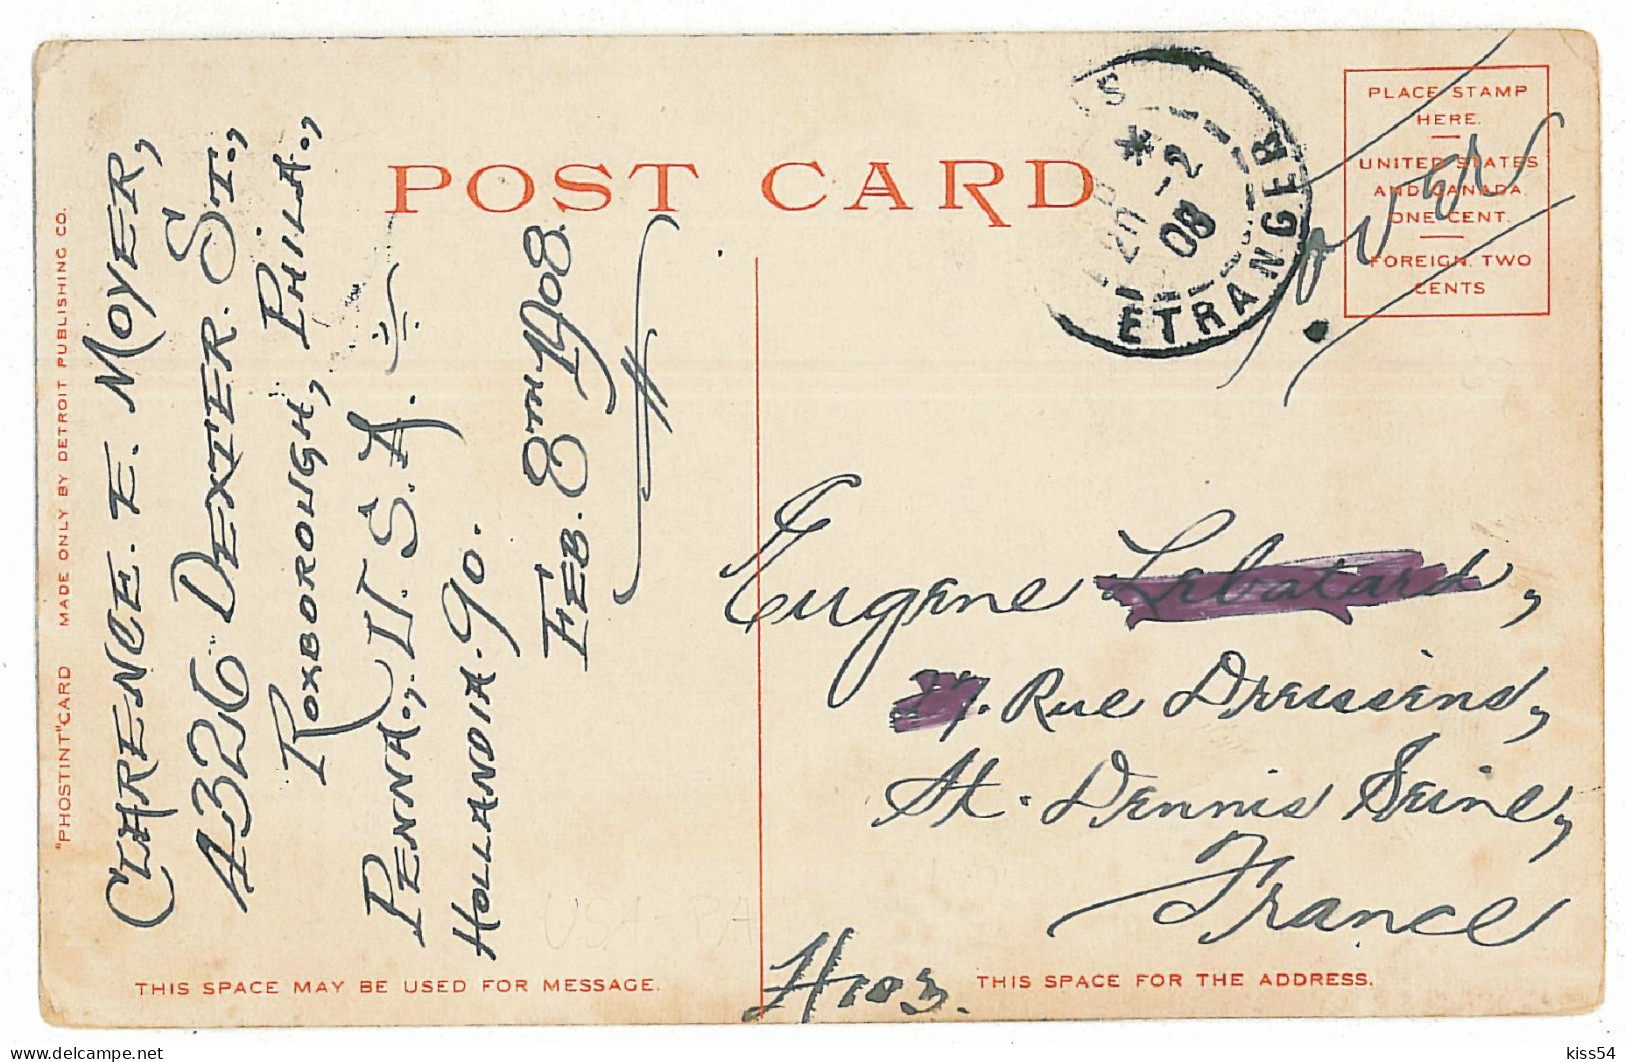 POST CARD
PLACE STAMP
HERE.
UNITED STATES
AND CANADA
ONE CENT.
FOREIGN, TWO
CENTS
OVER
ETRANGER
20 -2
08
"PHOSTINT" CARD MADE ONLY BY DETROIT PUBLISHING CO.
CLARENCE. E. MOYER,
4326 DEXTER. ST.,
ROXBOROUGH, PHILA.,
PENNA., U. S. A.
HOLLANDIA-90.
FEB. 8TH 1908.
Eugene Lebatard,
Rue
St. Dennis Seine,
France
H103.
THIS SPACE MAY BE USED FOR MESSAGE.
THIS SPACE FOR THE ADDRESS.
USA-PA
delcampe.net
kiss54